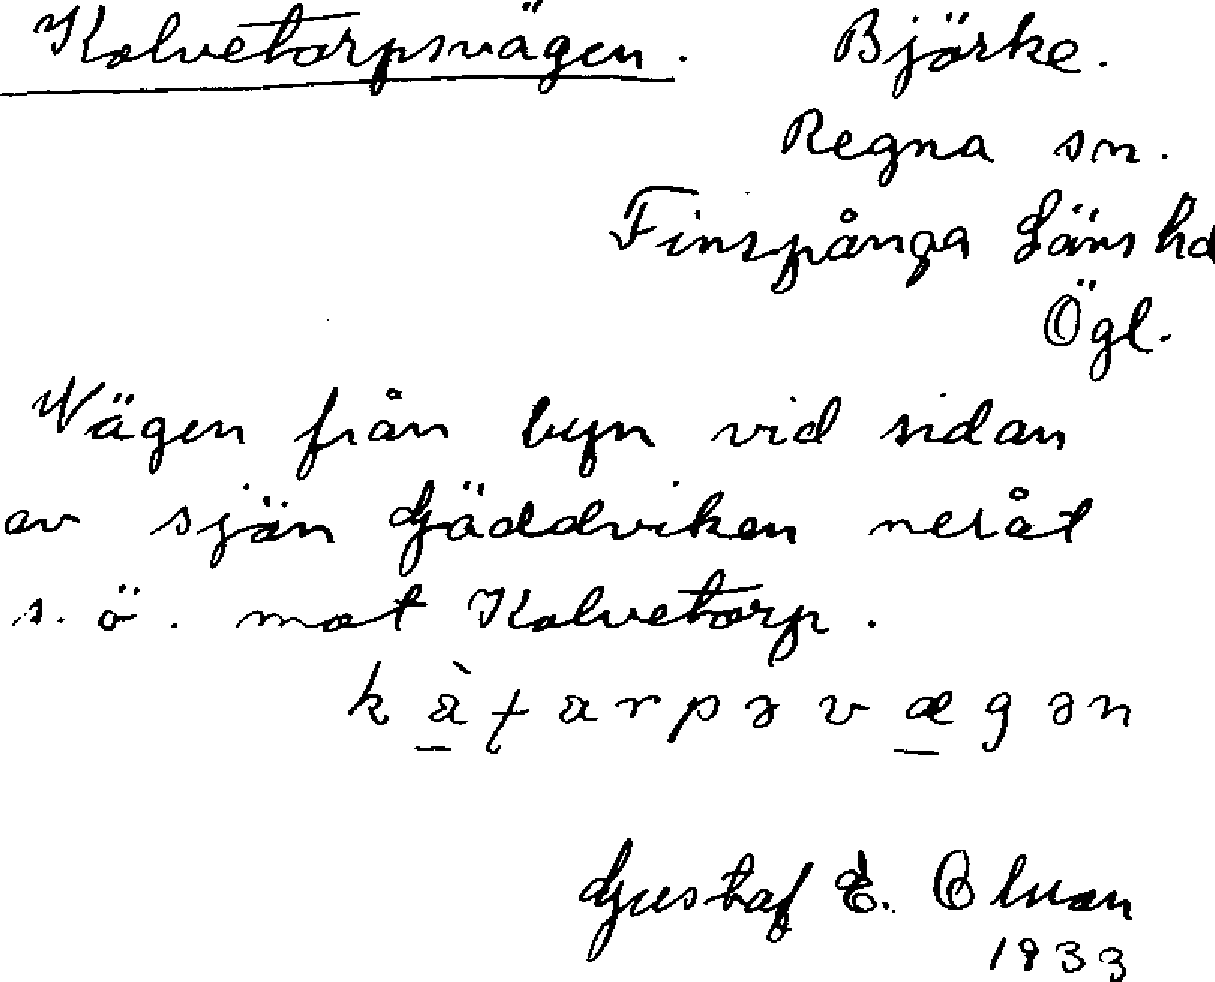 Kolvetorpsvägen. Björke.
Regna sn.
Finspånga Läns hd
Ögl.
Vägen från byn vid sidan
av sjön Gäddviken neråt
s. ö. mot Kolvetorp.
Gustaf E.
1933